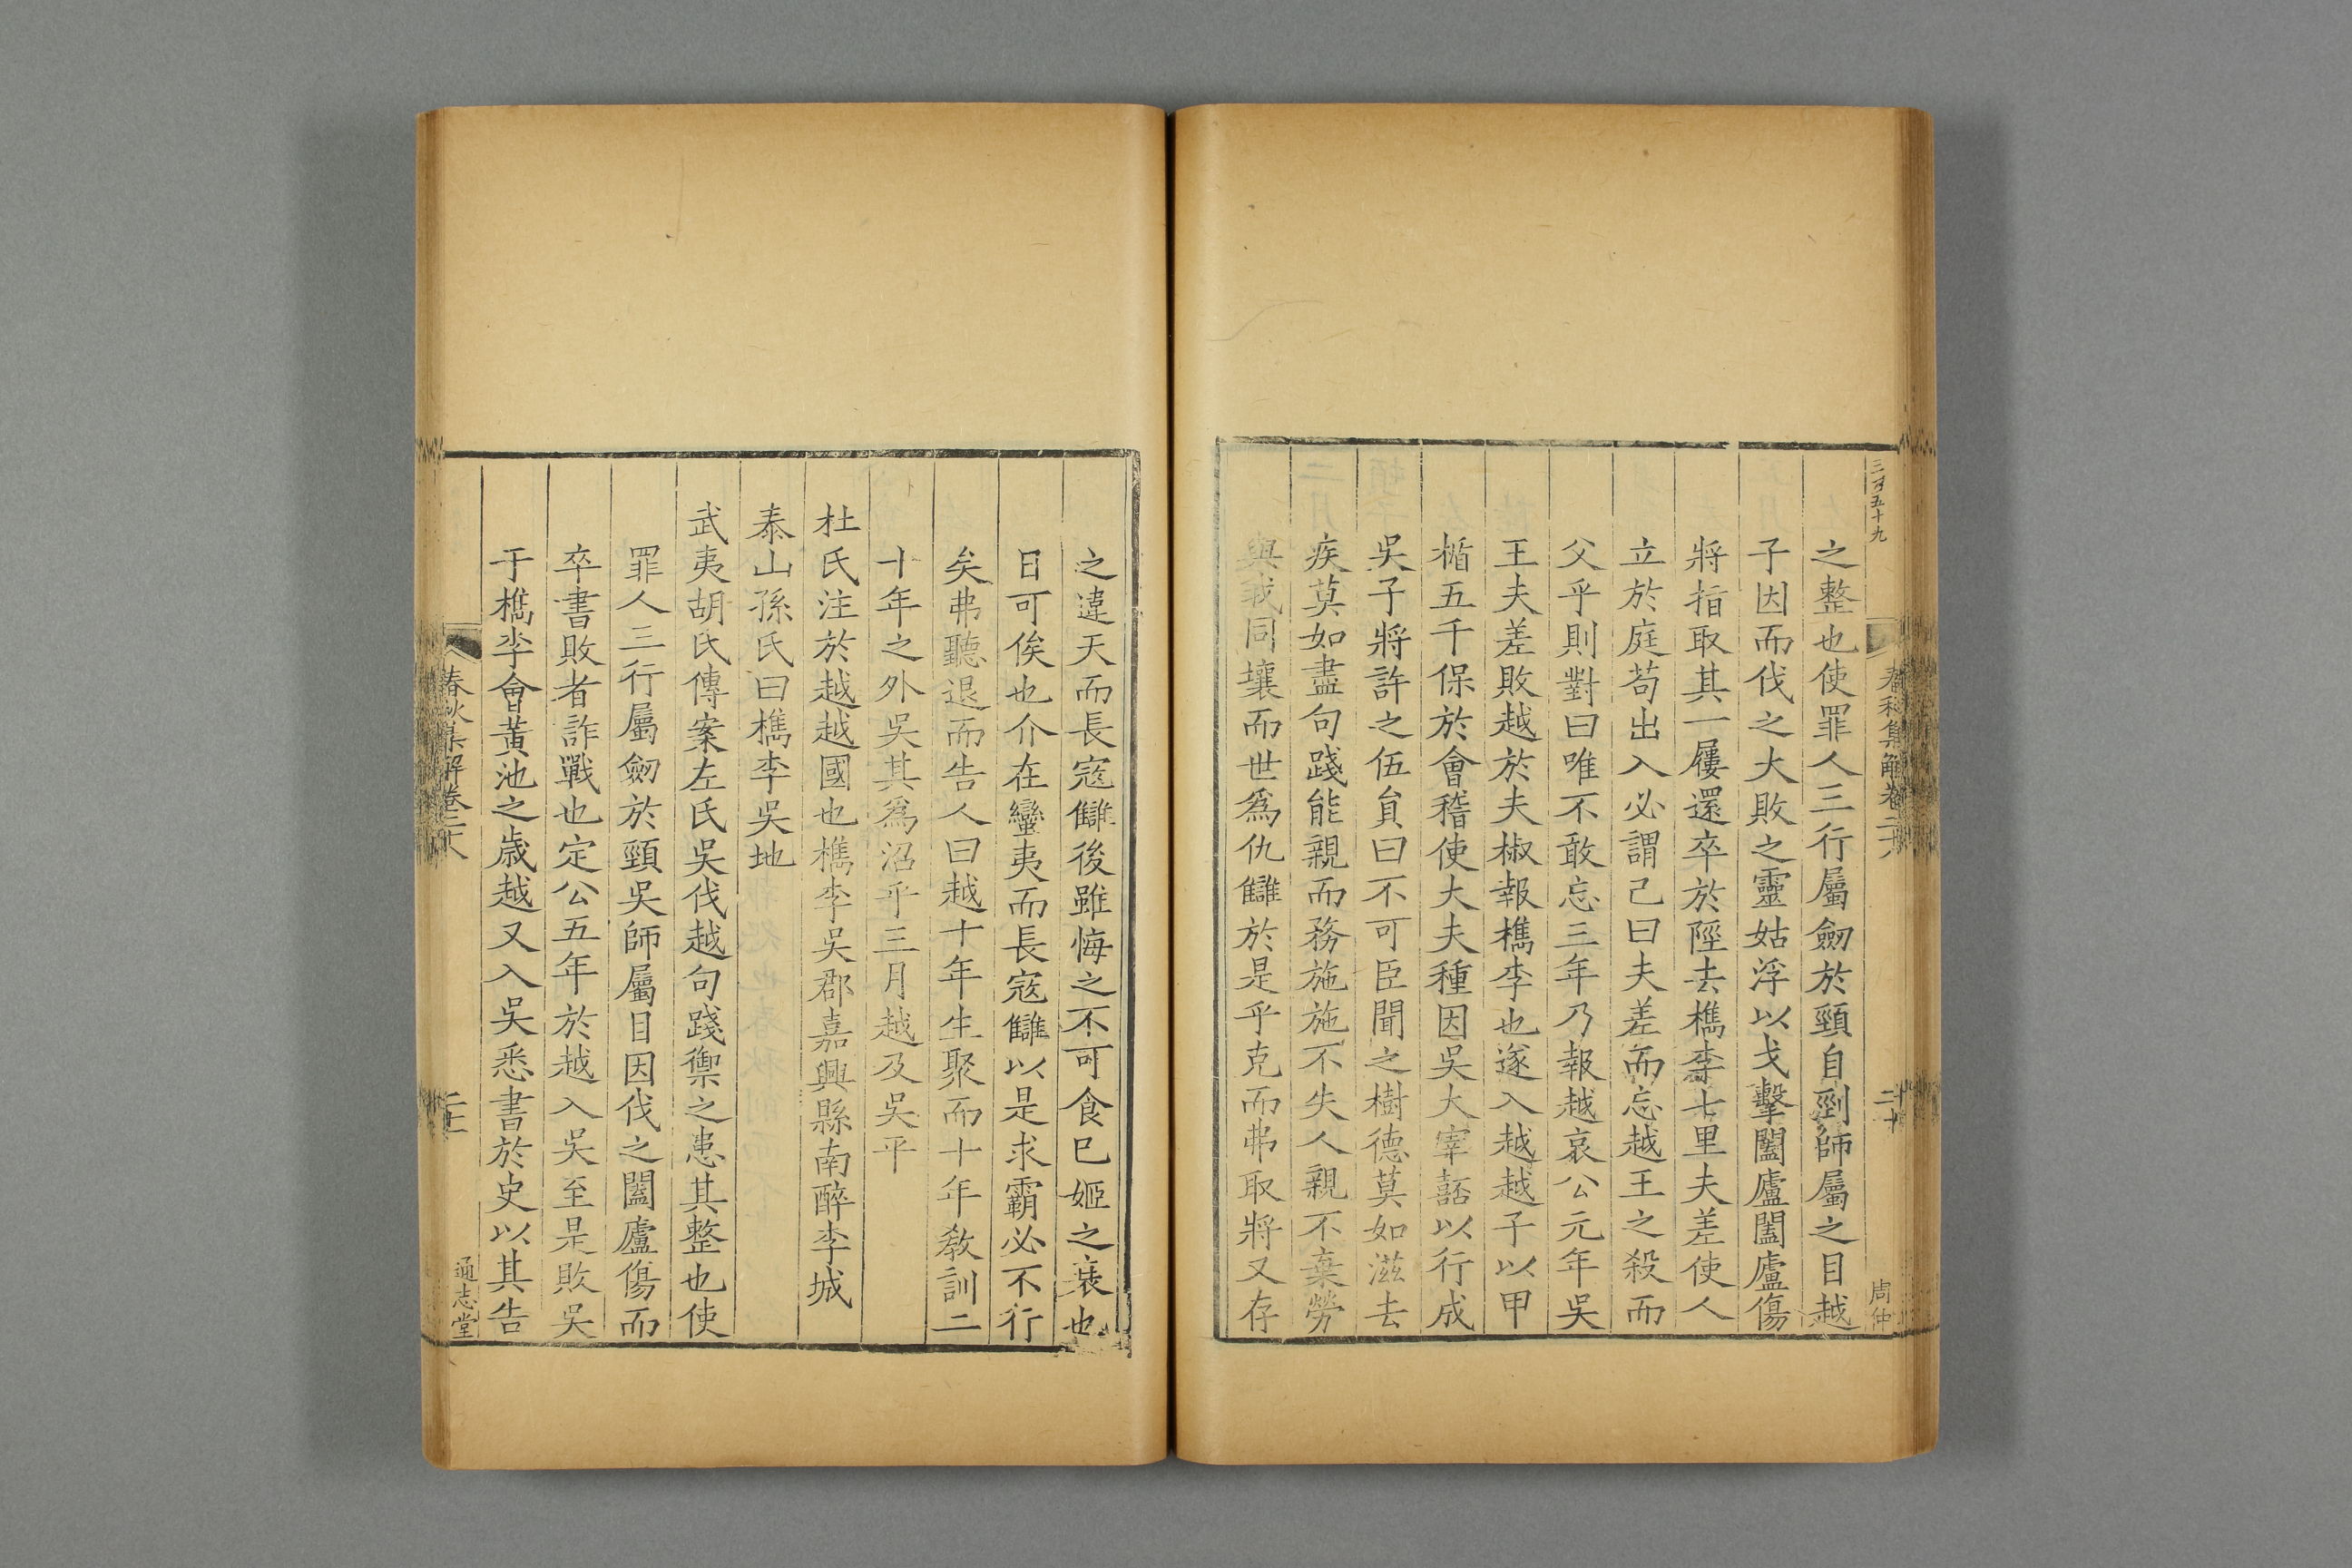 三百五十九
春秋集解卷二十八
周仲
之整也使罪人三行屬劒於頸自剄師屬之目越
子因而伐之大敗之靈姑浮以戈擊闔廬闔廬傷
將指取其一屨還卒於陘去檇李七里夫差使人
立於庭苟出入必謂己曰夫差而忘越王之殺而
父乎則對曰唯不敢忘三年乃報越哀公元年吳
王夫差敗越於夫椒報檇李也遂入越越子以甲
楯五千保於會稽使大夫種因吳大宰嚭以行成
吳子將許之伍貟曰不可臣聞之樹德莫如滋去
疾莫如盡句踐能親而務施施不失人親不棄勞
與我同壤而世爲仇讎於是乎克而弗取將又存
之違天而長寇讎後雖悔之不可食巳姬之衰也
日可俟也介在蠻夷而長寇讎以是求霸必不行
矣弗聽退而告人曰越十年生聚而十年敎訓二
十年之外吳其爲沼乎三月越及吳平
杜氏注於越越國也檇李吳郡嘉興縣南醉李城
泰山孫氏曰檇李吳地
武夷胡氏傳案左氏吳伐越句踐禦之患其整也使
罪人三行屬劒於頸吳師屬目因伐之闔廬傷而
卒書敗者詐戰也定公五年於越入吳至是敗吳
于檇李會黃池之歲越又入吳悉書於史以其告
春秋集解卷二十八
通志堂